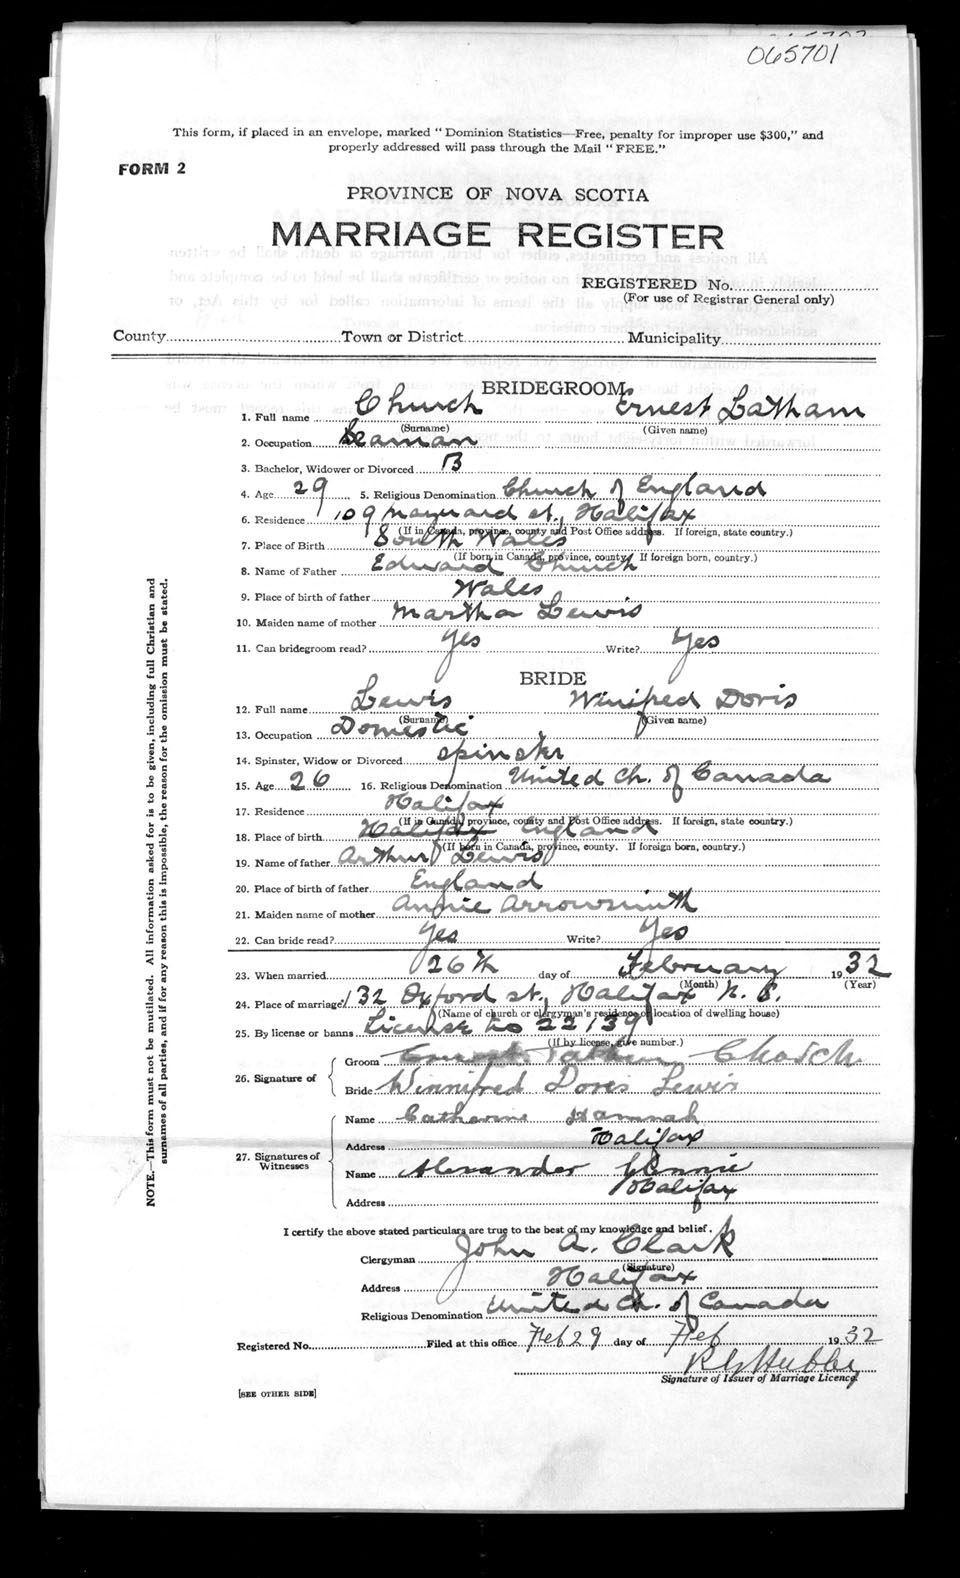 065701
This form, if placed in an envelope, marked " Dominion Statistics—Free, penalty for improper use $300," and
properly addressed will pass through the Mail " FREE."
FORM 2
PROVINCE OF NOVA SCOTIA
MARRIAGE REGISTER
REGISTERED No.
(For use of Registrar General only)
County Town or District Municipality
BRIDEGROOM
1. Full name Church Ernest Latham
(Surname) (Given name)
2. Occupation Seaman
3. Bachelor, Widower or Divorced B
4. Age 29 5. Religious Denomination Church of England
6. Residence 109 Maynard st, Halifax
(If in Canada, province, county and Post Office address. If foreign, state country.)
7. Place of Birth South Wales
(If born in Canada, province, county. If foreign born, country.)
8. Name of Father Edward Church
9. Place of birth of father Wales
10. Maiden name of mother Martha Lewis
11. Can bridegroom read? Yes Write? Yes
BRIDE
12. Full name Lewis Winifred Doris
(Surname) (Given name)
13. Occupation Domestic
14. Spinster, Widow or Divorced spinster
15. Age 26 16. Religious Denomination United Ch. of Canada
17. Residence Halifax
(If in Canada, province, county and Post Office address. If foreign, state country.)
18. Place of birth Halifax England
(If born in Canada, province, county. If foreign born, country.)
19. Name of father Arthur Lewis
20. Place of birth of father England
21. Maiden name of mother Annie Arrowsmith
22. Can bride read? Yes Write? Yes
23. When married 26th day of February 1932
(Month) (Year)
24. Place of marriage 132 Oxford st, Halifax N. S.
(Name of church or clergyman's residence or location of dwelling house)
25. By license or banns License no 22139
(If by license, give number.)
26. Signature of
Groom Ernest Latham Church
Bride Winnifred Doris Lewis
27. Signatures of
Witnesses
Name Catharine Hannah
Address Halifax
Name Alexander
Address Halifax
I certify the above stated particulars are true to the best of my knowledge and belief.
Clergyman John A. Clark
(Signature)
Address Halifax
Religious Denomination United Ch. of Canada
Registered No. Filed at this office Feb 29 day of Feb 1932
Signature of Issuer of Marriage Licence
[SEE OTHER SIDE]
NOTE.—This form must not be mutilated. All information asked for is to be given, including full Christian and
surnames of all parties, and if for any reason this is impossible, the reason for the omission must be stated.